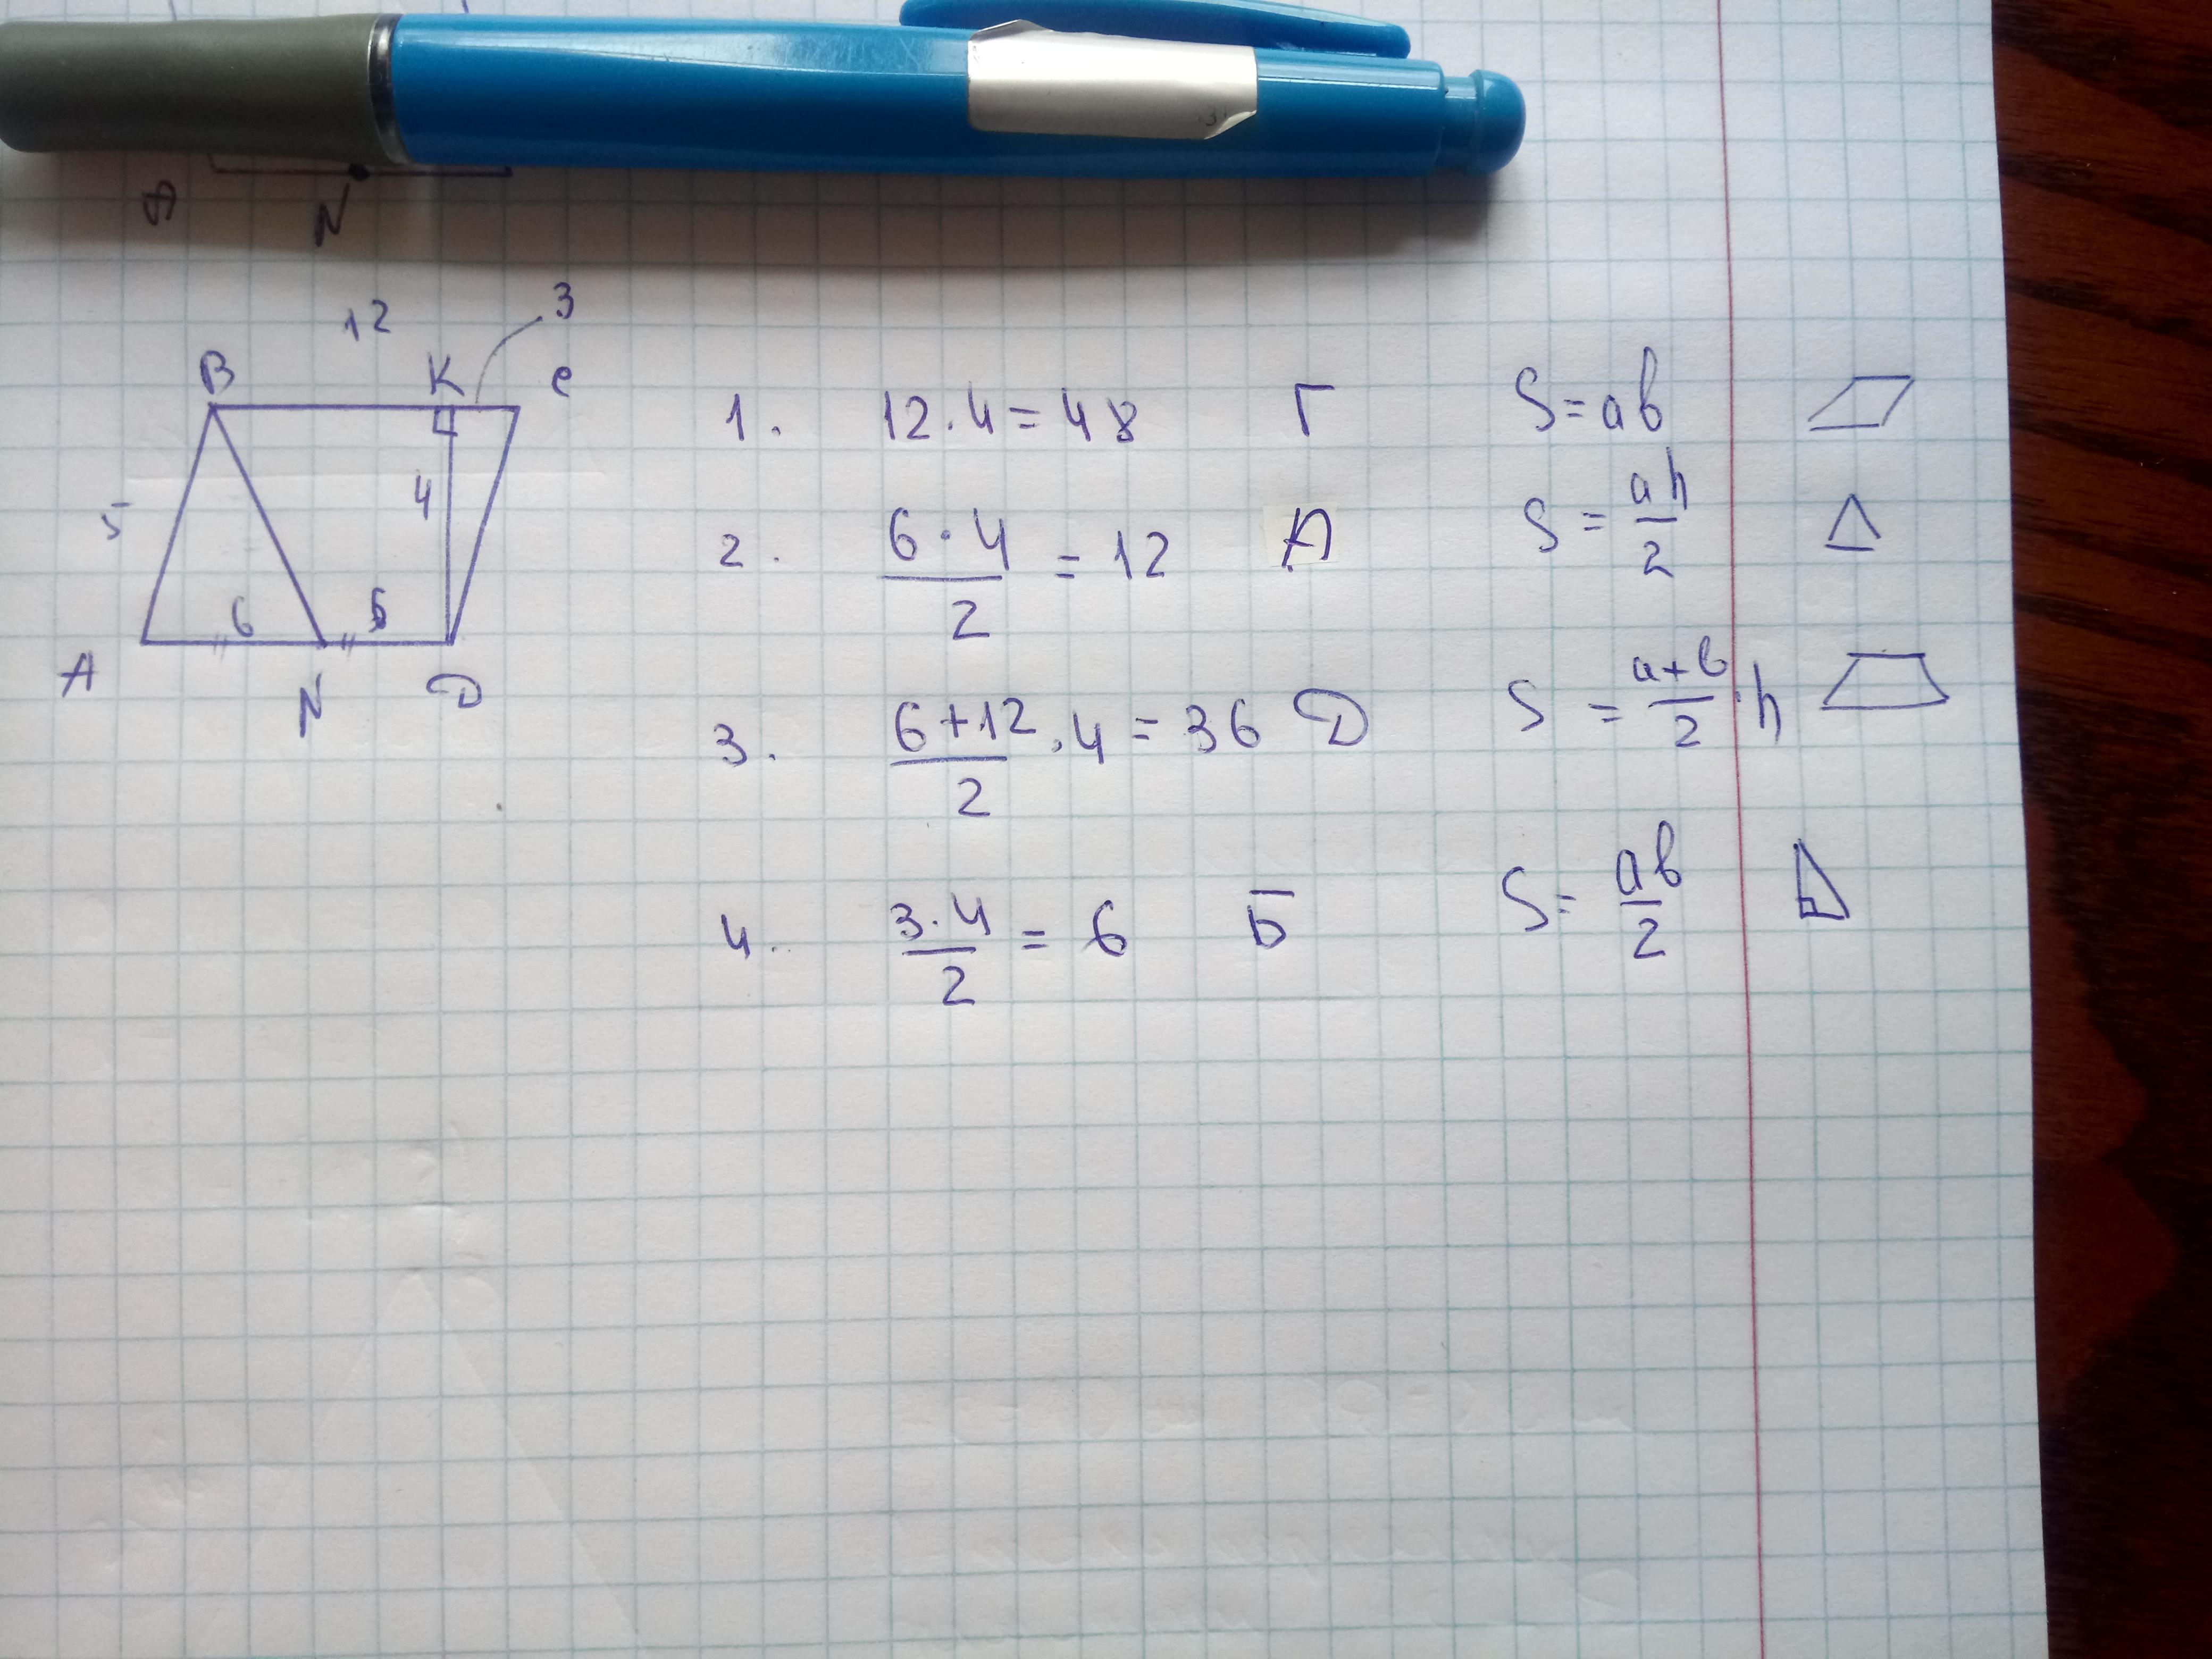 N
12
3
B K C
5
4
6 6
A N D
1. 12·4=48 Г S=ab
2. 6·4/2 = 12 A S = ah/2
3. 6+12/2 ·4 = 36 D S = a+b/2 ·h
4. 3·4/2 = 6 Б S= ab/2